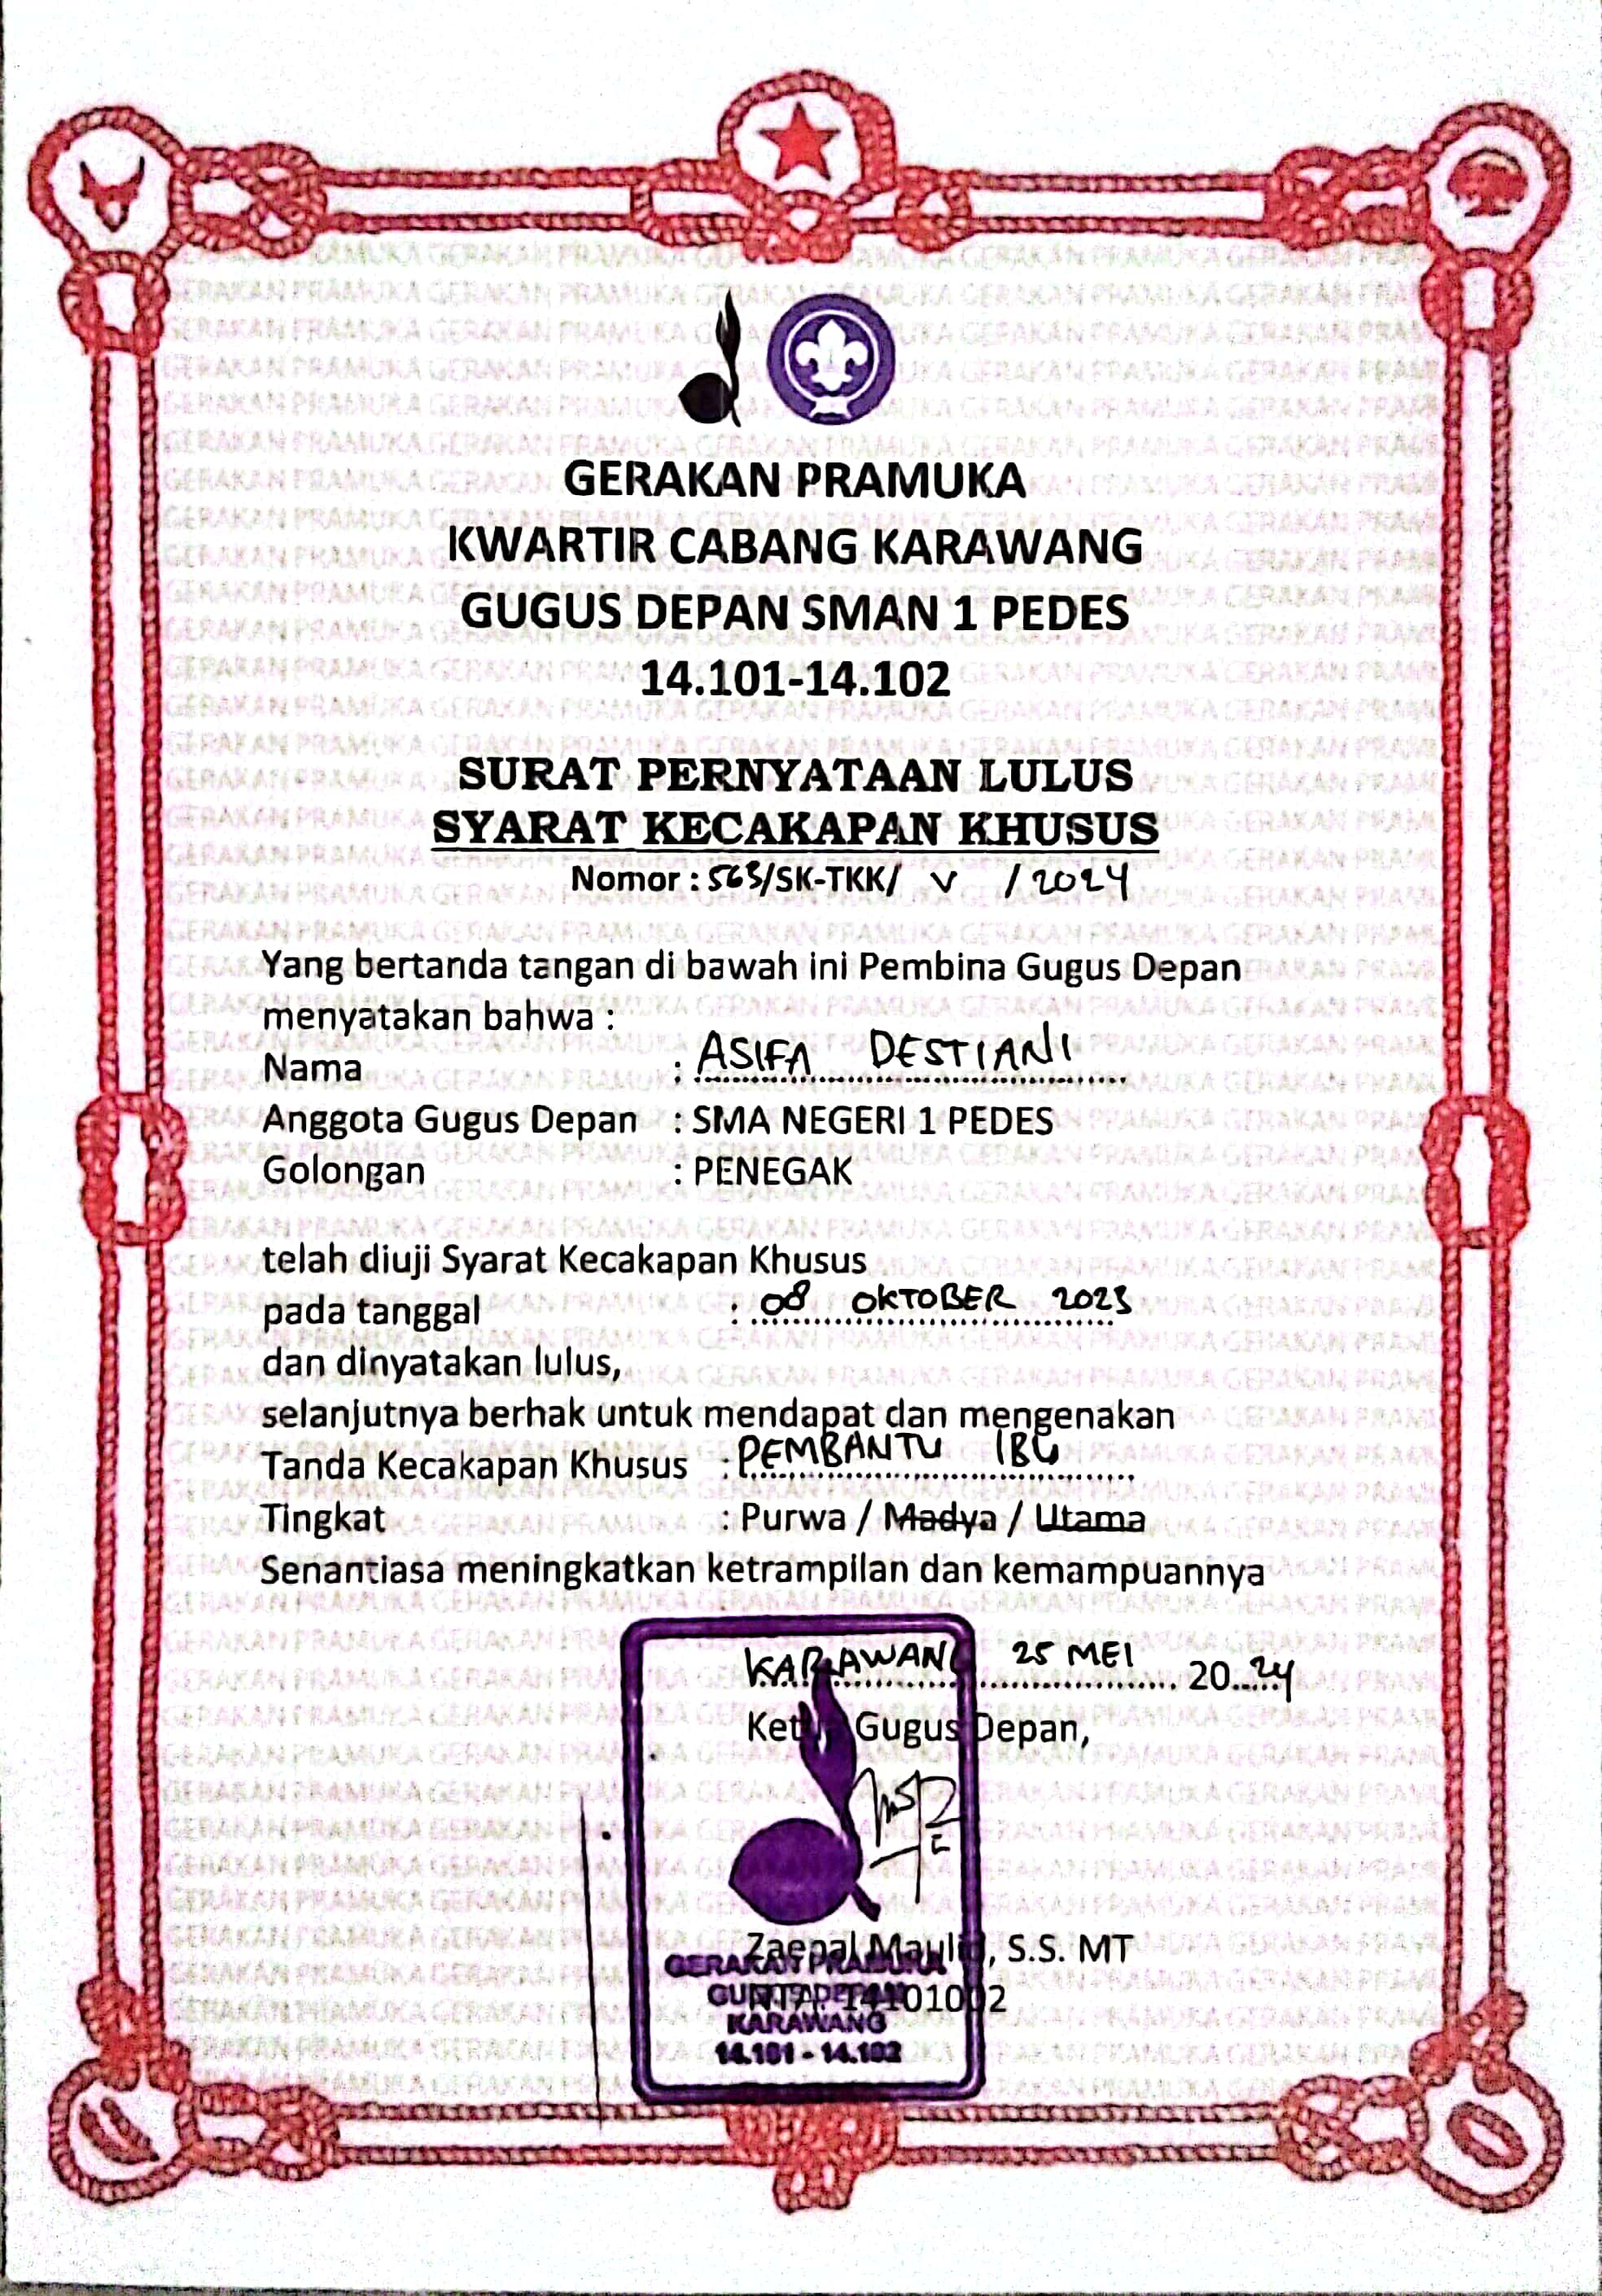 GERAKAN PRAMUKA
KWARTIR CABANG KARAWANG
GUGUS DEPAN SMAN 1 PEDES
14.101-14.102
SURAT PERNYATAAN LULUS
SYARAT KECAKAPAN KHUSUS
Nomor : 563/SK-TKK/ V /2024
Yang bertanda tangan di bawah ini Pembina Gugus Depan
menyatakan bahwa :
Nama : ASIFA DESTIANI
Anggota Gugus Depan : SMA NEGERI 1 PEDES
Golongan : PENEGAK
telah diuji Syarat Kecakapan Khusus
pada tanggal : 08 OKTOBER 2023
dan dinyatakan lulus,
selanjutnya berhak untuk mendapat dan mengenakan
Tanda Kecakapan Khusus : PEMBANTU IBU
Tingkat : Purwa / Madya / Utama
Senantiasa meningkatkan ketrampilan dan kemampuannya
KARAWANG 25 MEI 2024
Ketua Gugus Depan,
Zaenal Maulid, S.S. MT
GERAKAN PRAMUKA
KARAWANG
14.101 - 14.102